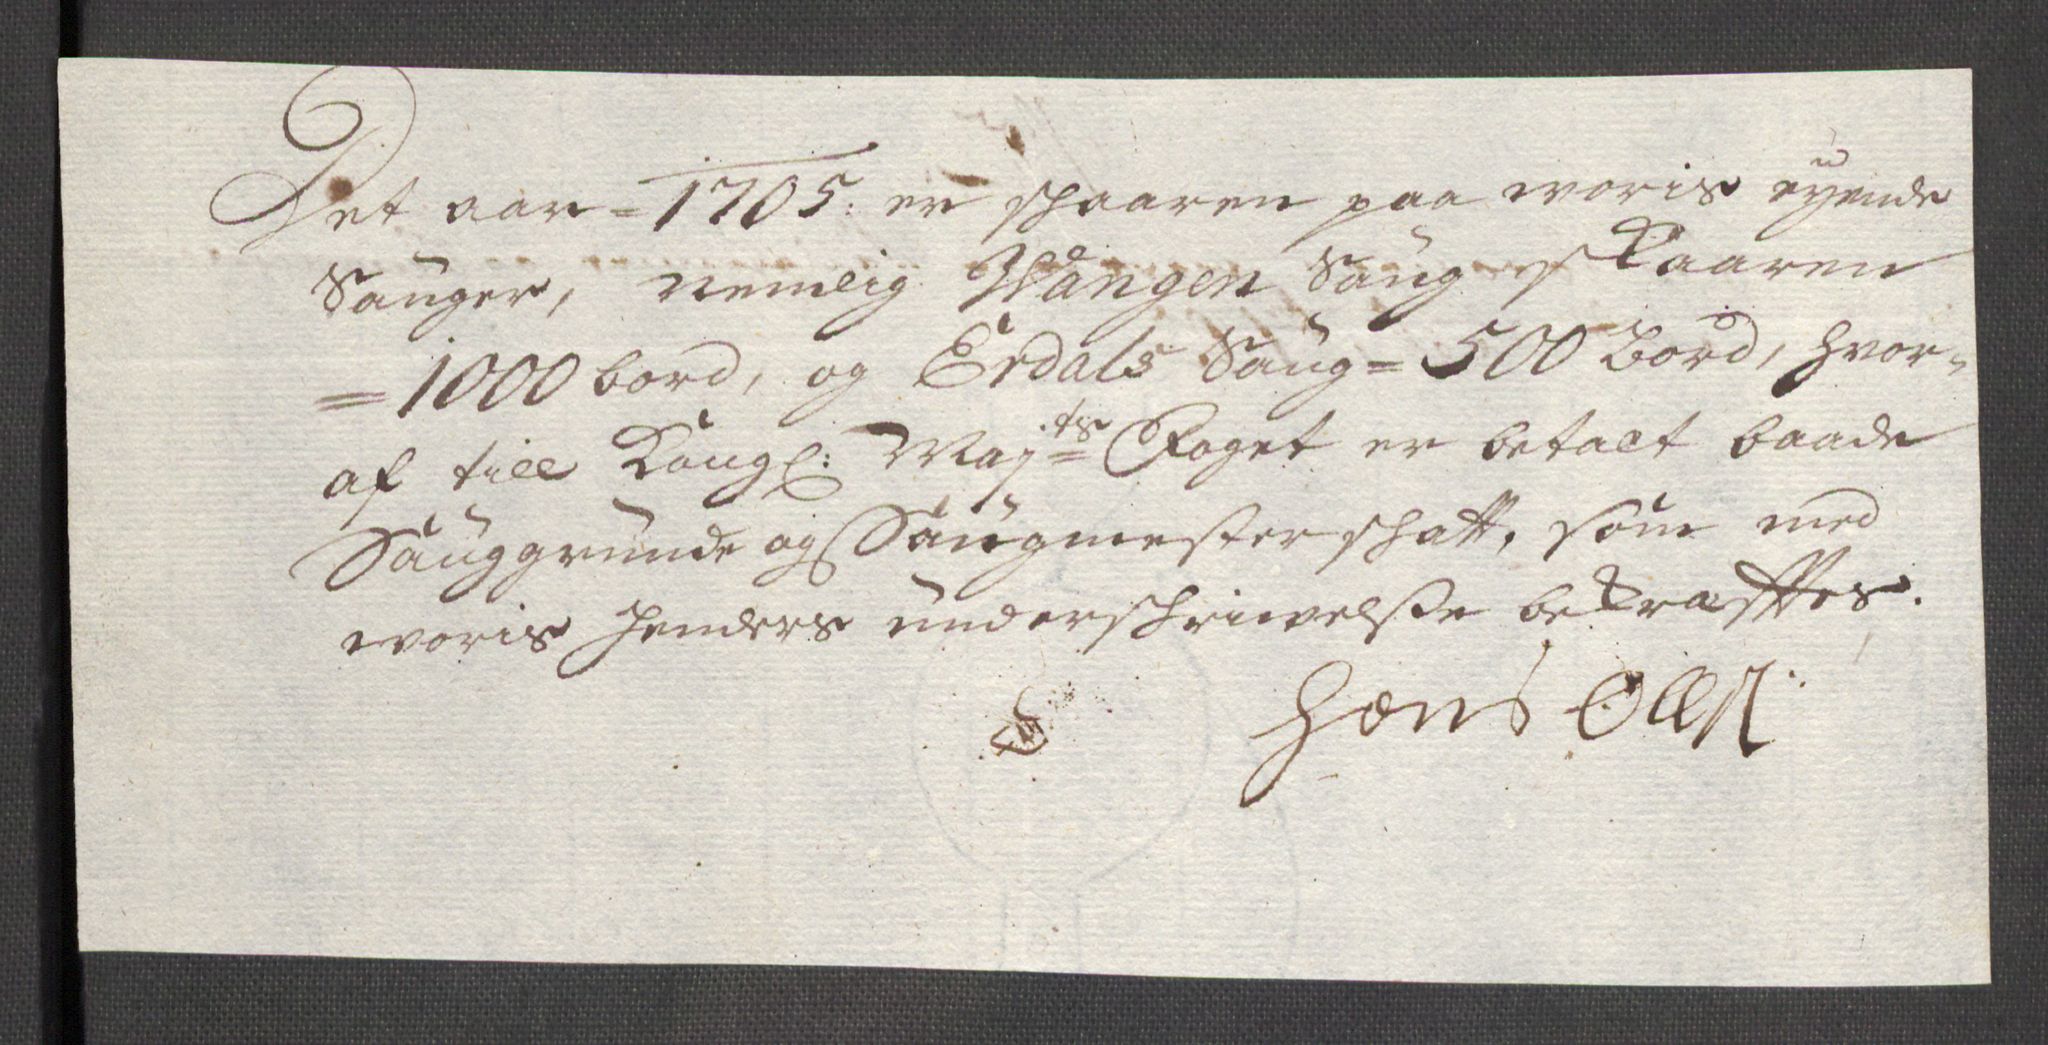 Det aar = 1705. er schaaren paa woris eyende
Sauger, nemlig Wangen Saug skaaren
= 1000 bord, og Erdals Saug = 500 Bord, hvor-
af till Kongl: Maj.ts Foget er betalt baade
Sauggrunde og Saugmesterschatt, som med
woris henders underschriwelsse bekræfftes.
Hans Olls: